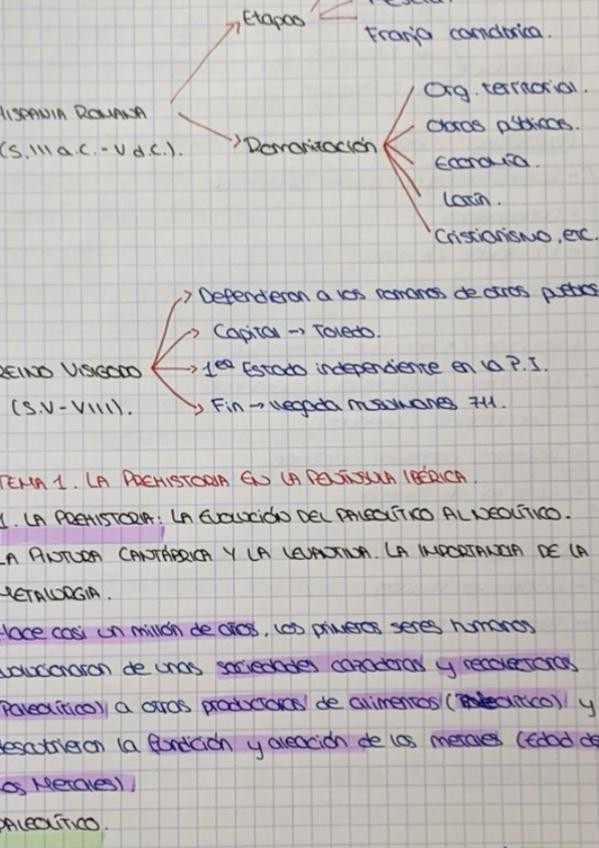 Etapas
Franja cantábrica.
HISPANIA ROMANA
(S.III a.C. - V d.C.).
Romanización
Org. territorial.
Obras públicas.
Economía.
Latín.
Cristianismo, etc.
REINO VISIGODO
(S.V-VIII).
Defendieron a los romanos de otros pueblos
Capital → Toledo.
1er Estado independiente en la P.I.
Fin → llegada musulmanes 711.
TEMA 1. LA PREHISTORIA EN LA PENÍNSULA IBÉRICA.
1. LA PREHISTORIA: LA EVOLUCIÓN DEL PALEOLÍTICO AL NEOLÍTICO.
LA PINTURA CANTÁBRICA Y LA LEVANTINA. LA IMPORTANCIA DE LA
METALURGIA.
Hace casi un millón de años, los primeros seres humanos
evolucionaron de unas sociedades cazadoras y recolectoras
(Paleolítico) a otras productoras de alimentos (Neolítico) y
descubrieron la fundición y aleación de los metales (Edad de
los Metales).
PALEOLÍTICO.